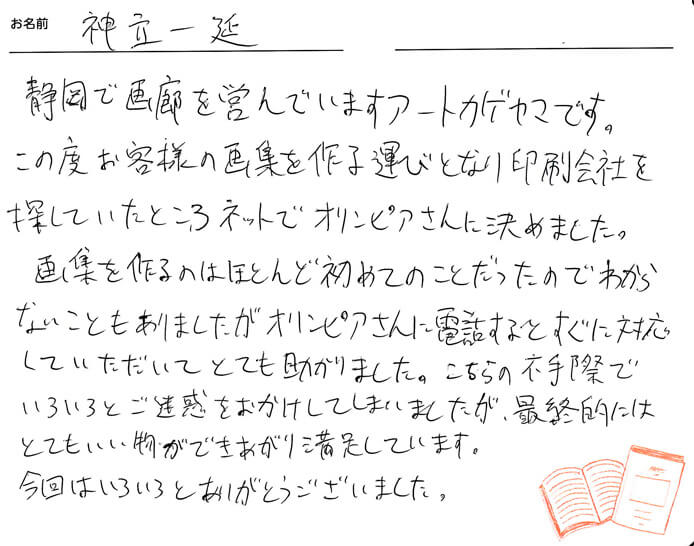 お名前 神立一延
静岡で画廊を営んでいますアートカゲヤマです。
この度お客様の画集を作る運びとなり印刷会社を
探していたところネットでオリンピアさんに決めました。
画集を作るのはほとんど初めてのことだったのでわから
ないこともありましたがオリンピアさんに電話するとすぐに対応
していただいてとても助かりました。こちらの不手際で
いろいろとご迷惑をおかけしてしまいましたが、最終的には
とてもいい物ができあがり満足しています。
今回はいろいろとありがとうございました。